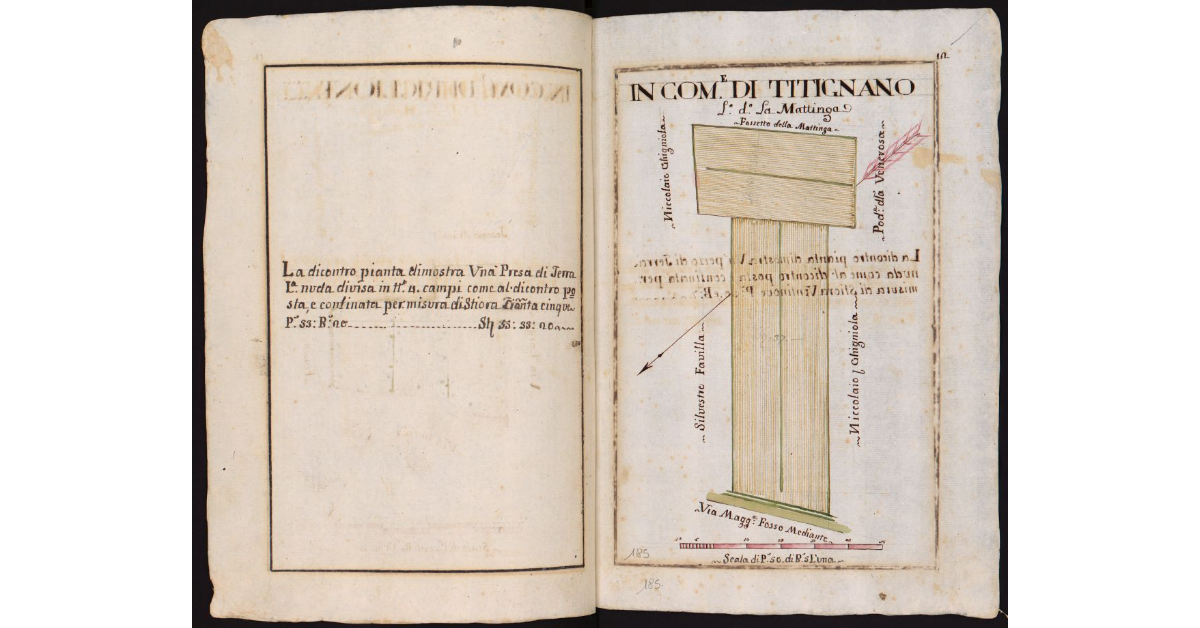 La dicontro pianta dimostra Vna Presa di Terra
L.ª nuda divisa in tt.º 4. campi come al dicontro po
sta, e confinata per misura di Stiora Trenta cinque
P.ª 55: R.ª 20 St 55: 55: 20
10
IN COM.E DI TITIGNANO
L.º d.º La Mattinga
Fossetto della Mattinga
Niccolaio Ghigniola
Pod.ª dlla Venerosa
Silvestro Favilla
Niccolaio Ghigniola
Via Magg.e Fosso Mediante
Scala di P.ª 50. di B.ª 5 L'una
185
185